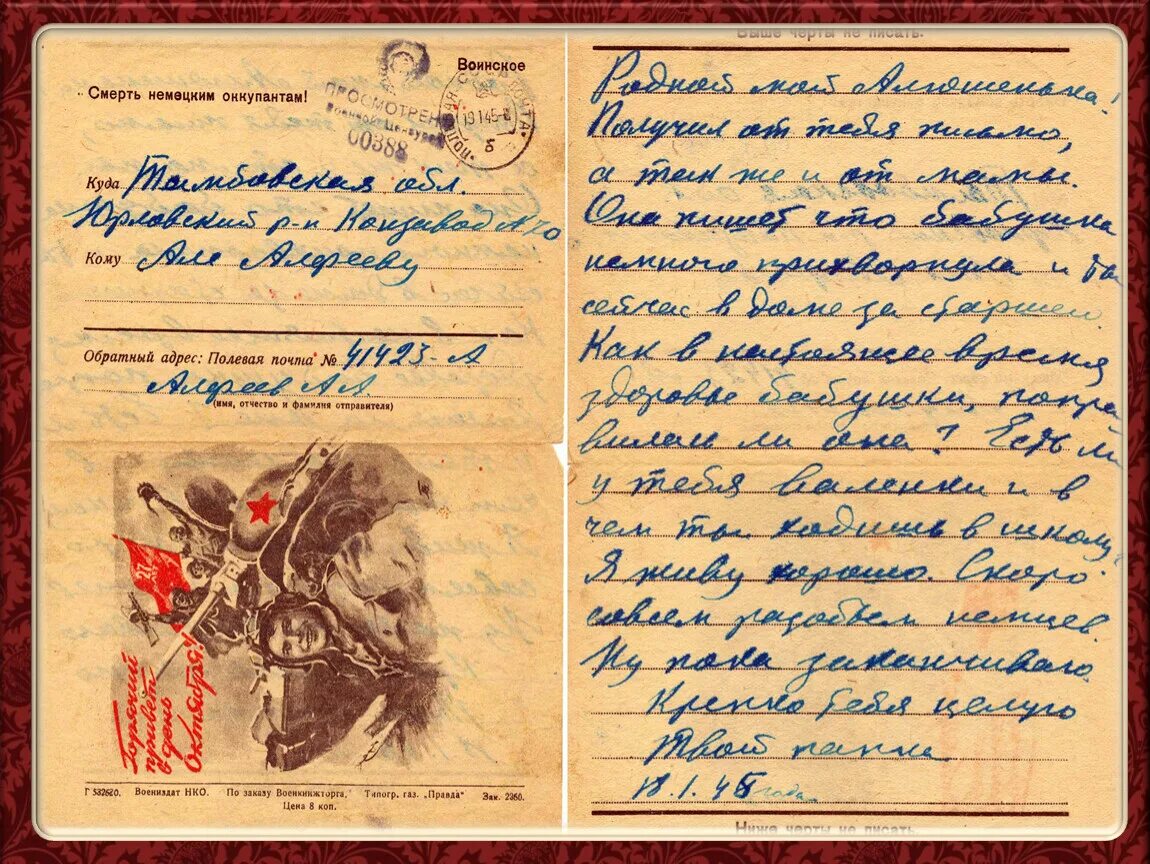 Воинское
Смерть немецким оккупантам!
ПРОСМОТРЕНО
Военной Цензурой
00388
19 1 45
Куда Тамбовская обл.
Юрловский р-н Конзавод
Кому Але Алфееву
Обратный адрес: Полевая почта № 41423-А
Алфеев А.А.
(имя, отчество и фамилия отправителя)
27
Горячий
привет
в день
Октября!
Г 532620. Воениздат НКО. По заказу Военкнижторга. Типогр. газ. „Правда" Зак. 2260.
Цена 8 коп.
Выше черты не писать.
Родной мой Алюшенька!
Получил от тебя письмо,
а так же и от мамы.
Она пишет что бабушка
немного прихворнула и ты
сейчас в доме за старшего.
Как в настоящее время
здоровье бабушки, попра
вилась ли она? Есть ли
у тебя валенки и в
чем ты ходишь в школу?
Я живу хорошо. Скоро
совсем разобьем немцев.
Ну пока заканчиваю.
Крепко тебя целую
Твой папка
18.1.45 года
Ниже черты не писать.